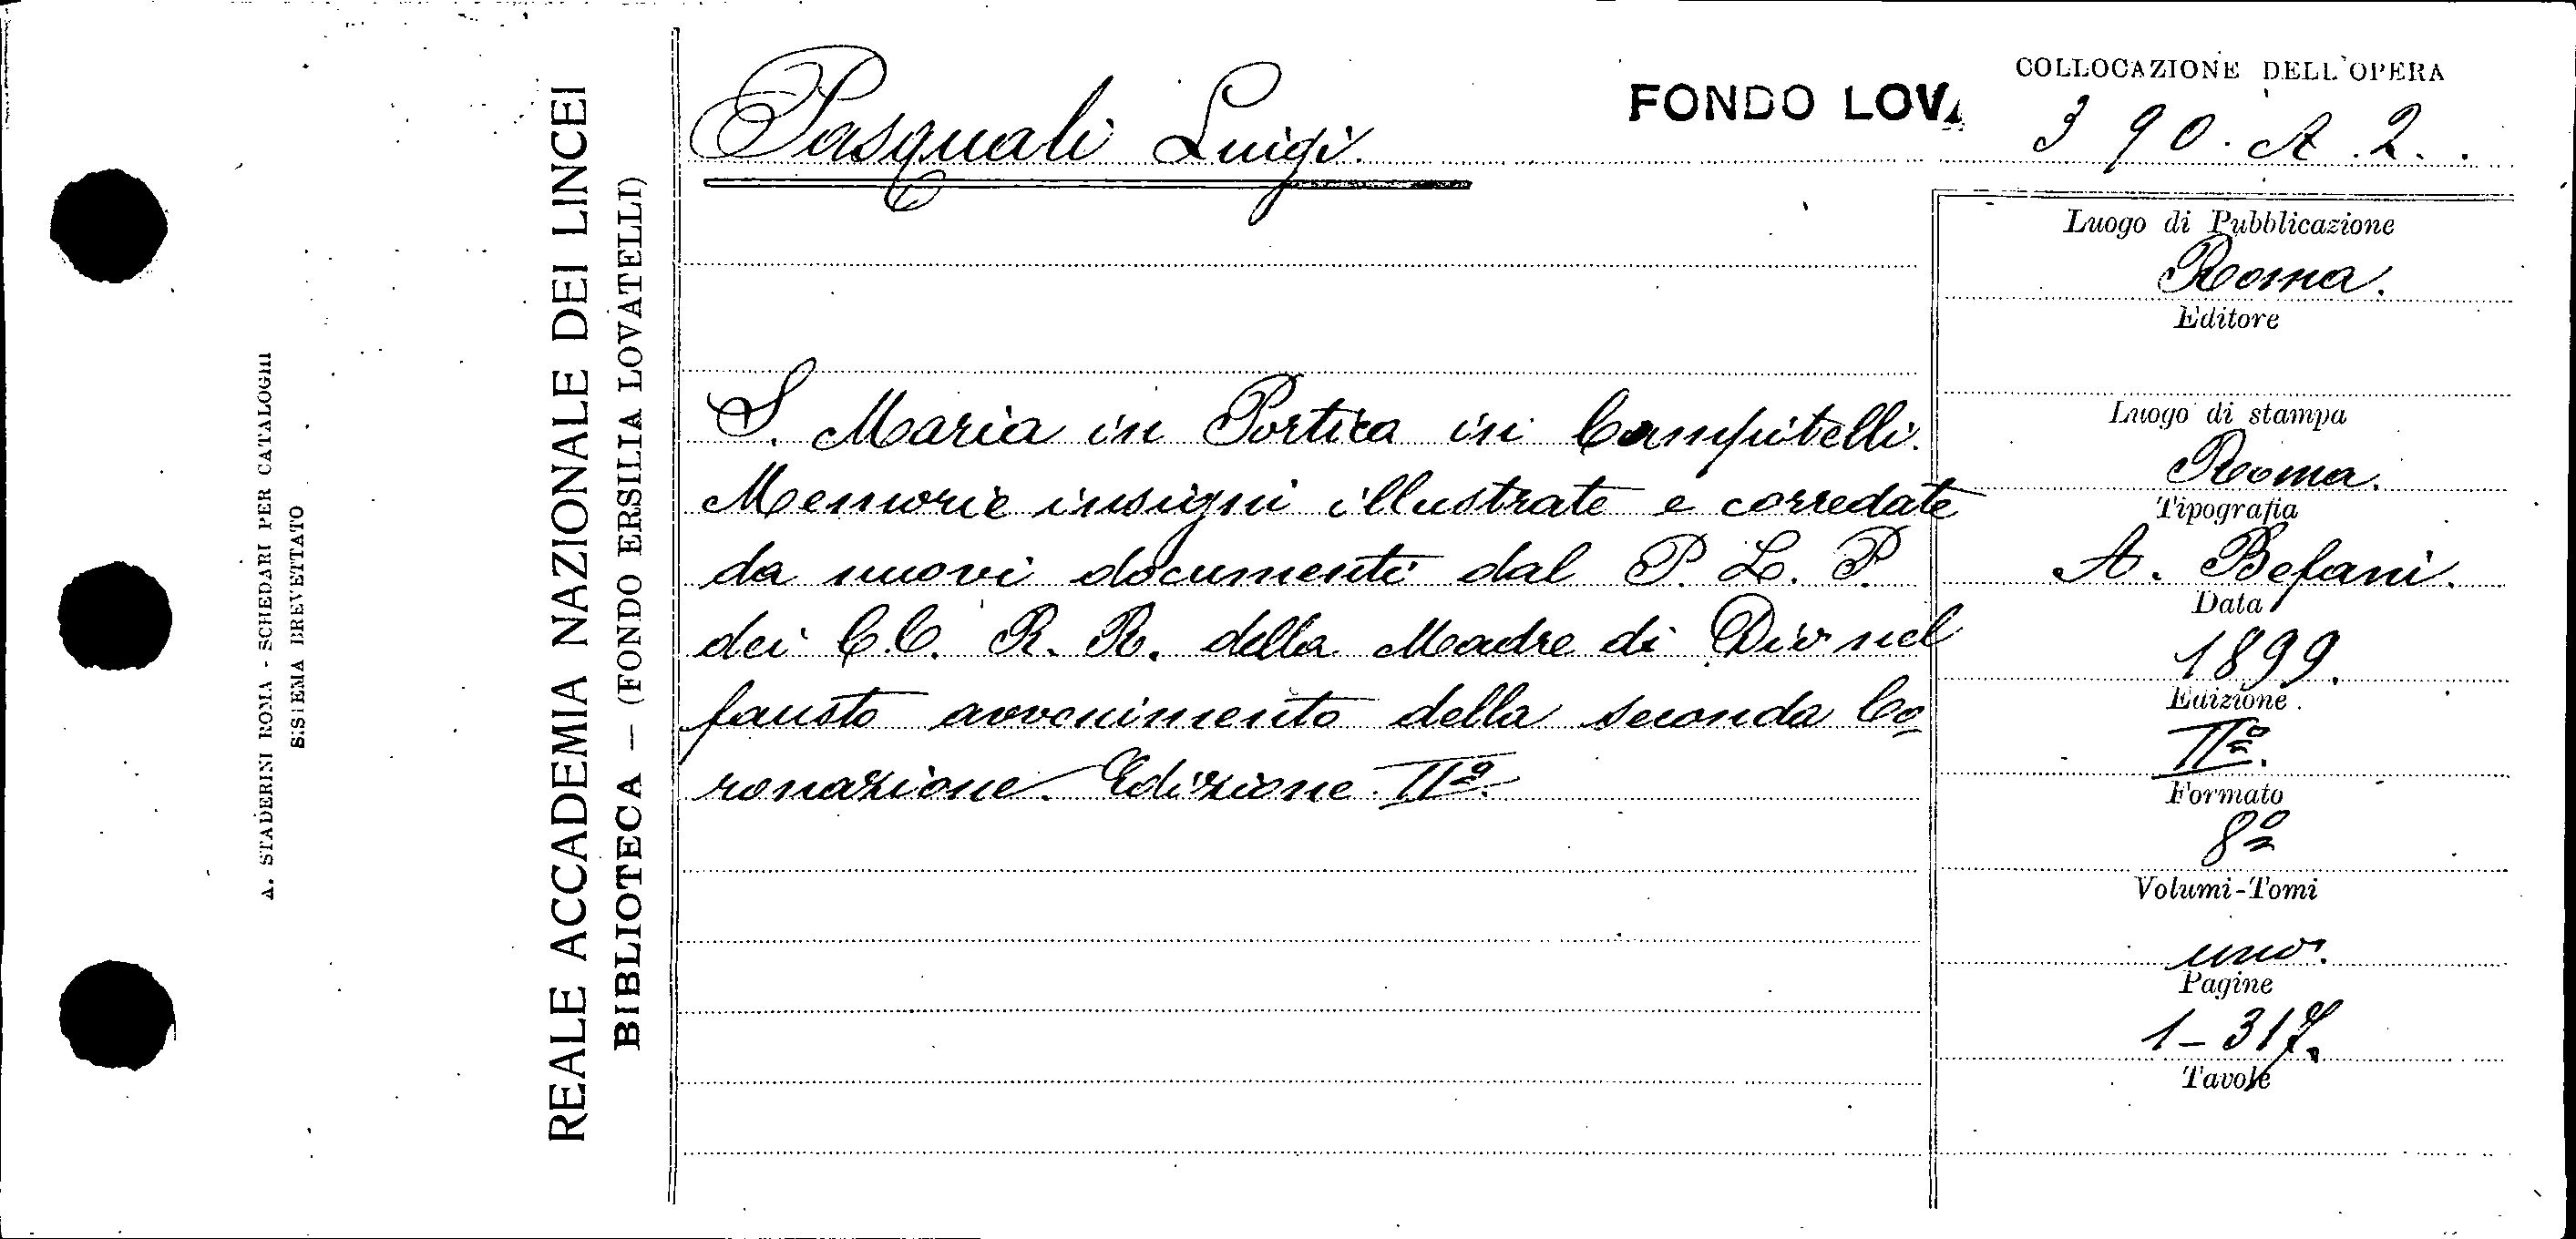 A. STADERINI ROMA - SCHEDARI PER CATALOGHI
SISTEMA BREVETTATO
REALE ACCADEMIA NAZIONALE DEI LINCEI
BIBLIOTECA — (FONDO ERSILIA LOVATELLI)
Pasquali Luigi.
FONDO LOVA
S. Maria in Portica in Campitelli.
Memorie insigni illustrate e corredate
da nuovi documenti dal P. L. P.
dei C.C. R. R. della Madre di Dio nel
fausto avvenimento della seconda Co
ronazione. Edizione IIª.
COLLOCAZIONE DELL'OPERA
390. A. 2.
Luogo di Pubblicazione
Roma.
Editore
Luogo di stampa
Roma.
Tipografia
A. Befani.
Data
1899.
Edizione
IIª.
Formato
8º
Volumi-Tomi
uno.
Pagine
1-317.
Tavole